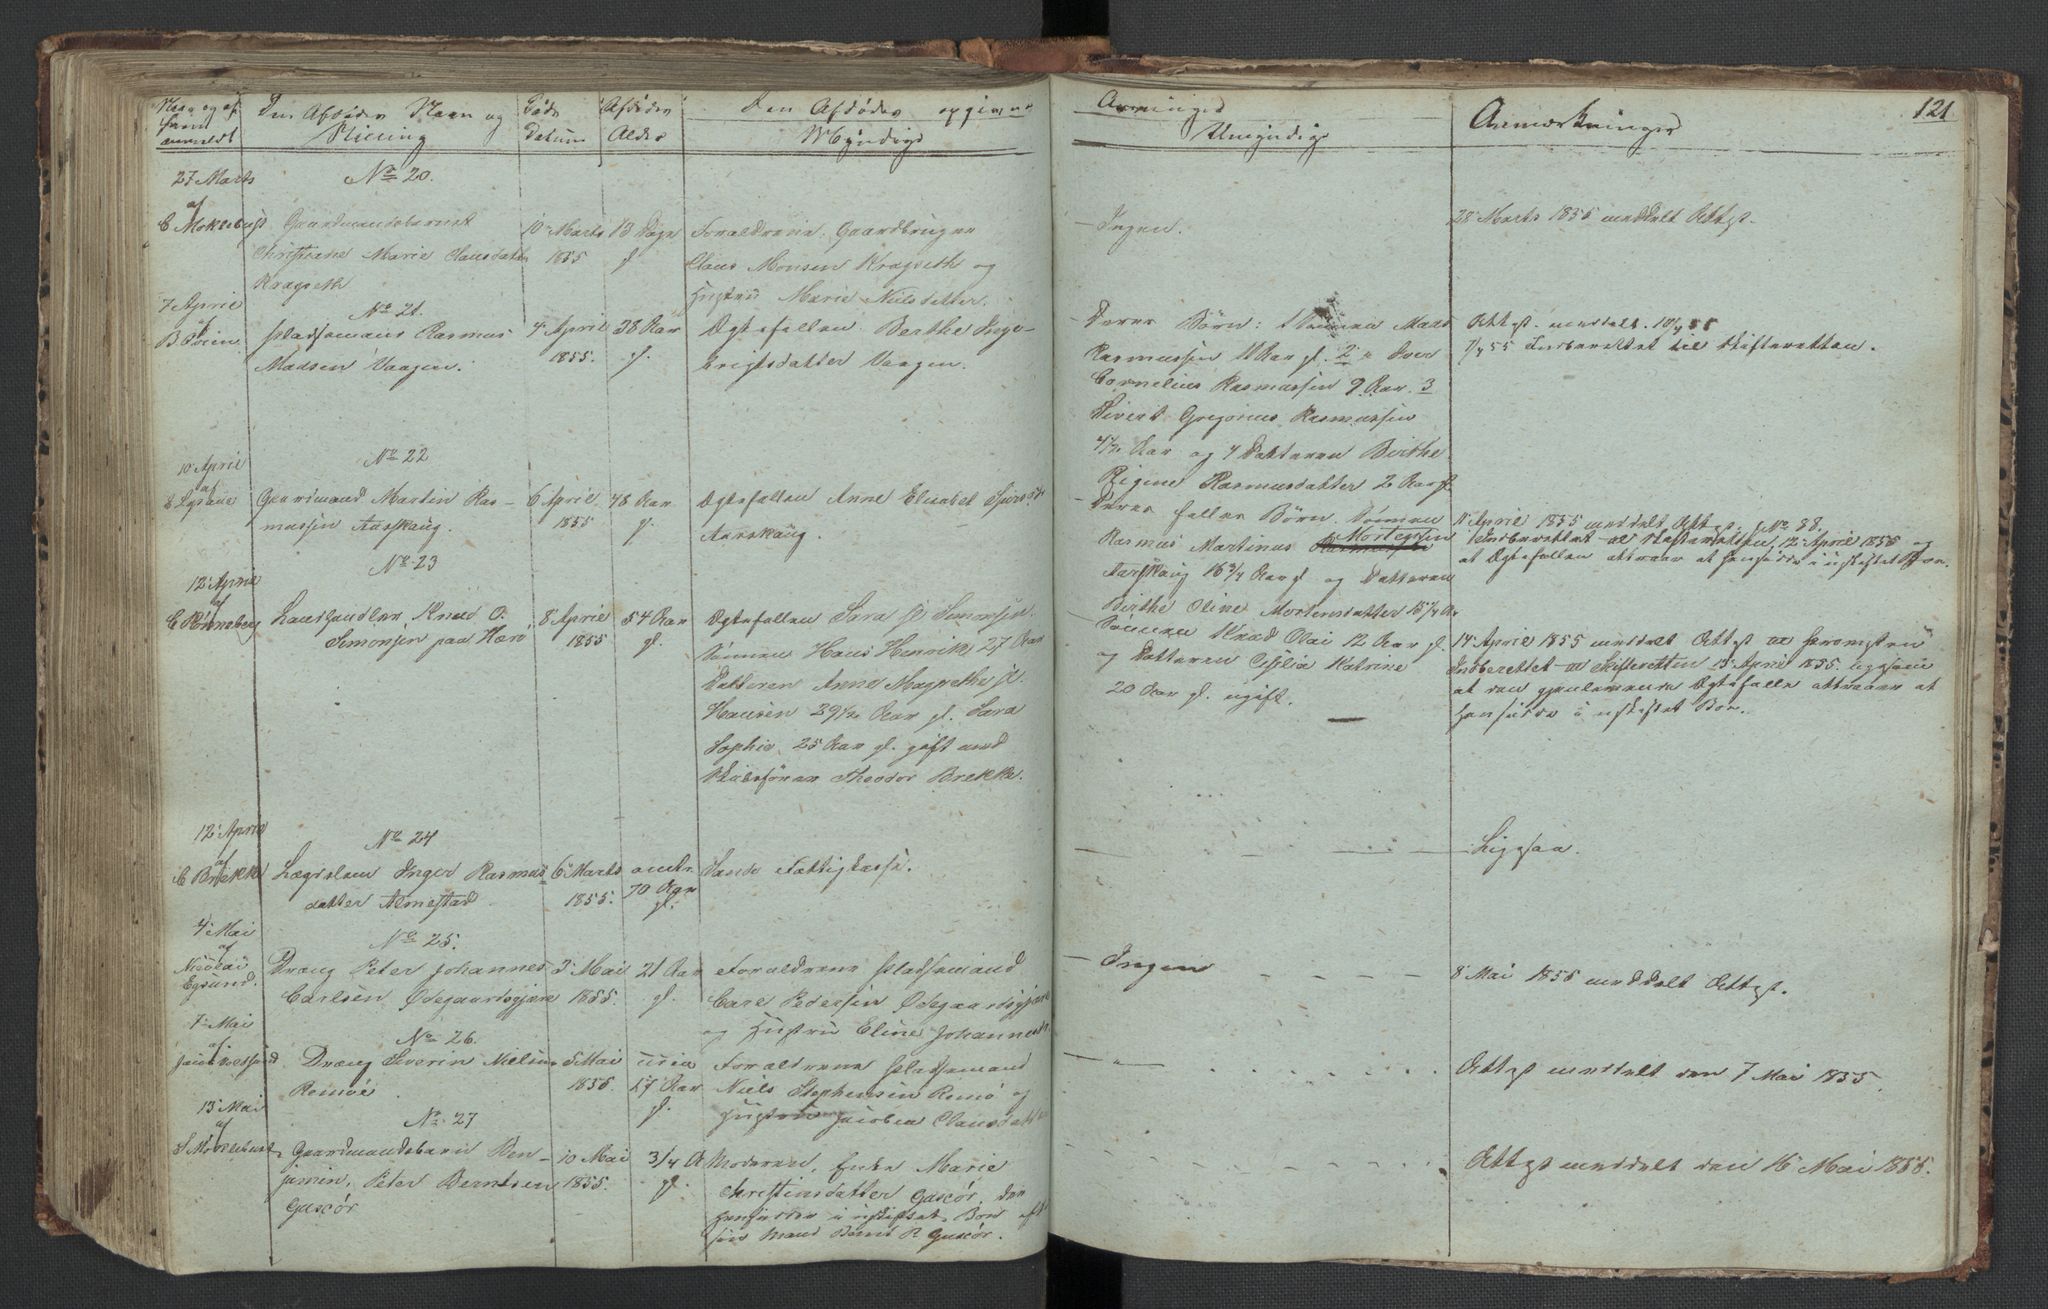 Den Afdødes Navn og
Stilling
Døds
Datum
Afdødes
Alder
Den Afdødes opgivne
Myndige
Arvinger
Umyndige
Anmærkninger
121
27 Marts
af
No 20.
Gaardmandsbarnet
Christiane Marie Clausdatter
Kragseth
10 Marts
1855
13 Dage
gl.
Forældrene: Gaardbruger
Claus Monsen Kragseth og
Hustru Marie Nilsdatter.
Ingen.
28 Marts 1855 meddelt Attest.
7 April
af
No 21.
Pladsemand Rasmus
Madsen Vaagen.
4 April
1855.
38 Aar
gl.
Ægtefællen Berthe Inge-
Vaagen.
Deres Børn: 1 Sønnen Mads
Rasmussen 11 Aar gl. 2
Cornelius Rasmussen 9 Aar. 3
Sivert Gregorius Rasmussen
Aar og 4 Datteren Birthe
Regine Rasmusdatter 2 Aar gl.
Attest meddelt
Indberettet til Skifteretten.
10 April
af
No 22
Gaardmand Martin Ras-
mussen Aarskaug.
6 April
1855
48 Aar
gl.
Ægtefællen Anne Elisabet
Aarskaug.
Deres fælles Børn. Sønnen
Rasmus Martinus Mortensen
Aarskaug 16 3/4 Aar gl og Datteren
Birthe Oline Mortensdatter
11 April 1855 meddelt Attest. No 88.
Indberettet til Skifteretten 12 April 1855 og
at Ægtefællen attraar at hensidde i uskiftet Boe.
12 April
af
No 23
Landhandler Knud O.
Simonsen paa Herø
8 April
1855
54 Aar
gl.
Ægtefællen Sara
Sønnen Hans Henrik 27 Aar
Datteren Anne Magrethe
Hansen 29 1/2 Aar gl. Sara
Sophie 25 Aar gl. gift med
Theodor Brekke.
Sønnen Knud Olai 12 Aar gl.
og Datteren Katrine
20 Aar gl. ugift.
14 April 1855 meddelt Attest
Indberettet til Skifteretten 13 April 1855. ligesom
at den gjenlevende Ægtefælle attraar at
hensidde i uskiftet Boe.
12 April
af
C Brekke
No 24
Lægslem Inger Rasmus
datter Almestad
6 Marts
1855.
omtr.
70 Aar
gl.
Sande Fattigkasse.
Ligesaa.
4 Mai
af
Nicolai
Egsund.
No 25.
Dreng Peter Johannes
Carlsen Ødegaardsgjære
3 Mai
1855.
21 Aar
gl.
Forældrene Pladsemand
Carl Pedersen Ødegaardsgjære
og Hustru Eline Johannesd.
Ingen
8 Mai 1855 meddelt Attest.
7 Mai
af
No 26.
Dreng Severin Nielsen
Remøe
5 Mai
1855
17 Aar
gl.
Forældrene Pladsemand
Niels Stephensen Remø og
Hustru Jacobea Clausdatter
Attest meddelt den 7 Mai 1855.
15 Mai
af
No 27
Gaardmandsbarn Ben-
jamin Peter Berntsen
Guscør
10 Mai
1855.
3/4 A
gl.
Moderen, Enke Marie
Christiansdatter Guscør, der
hensidder i uskiftet Boe efter
sin Mand Bernt R Guscør.
Attest meddelt den 16 Mai 1855.